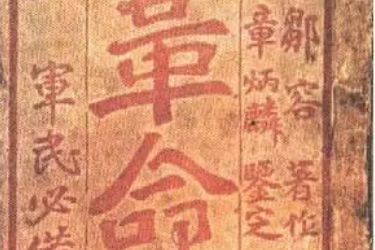 鄒容著作
章炳麟鑒定
革命
軍民必備